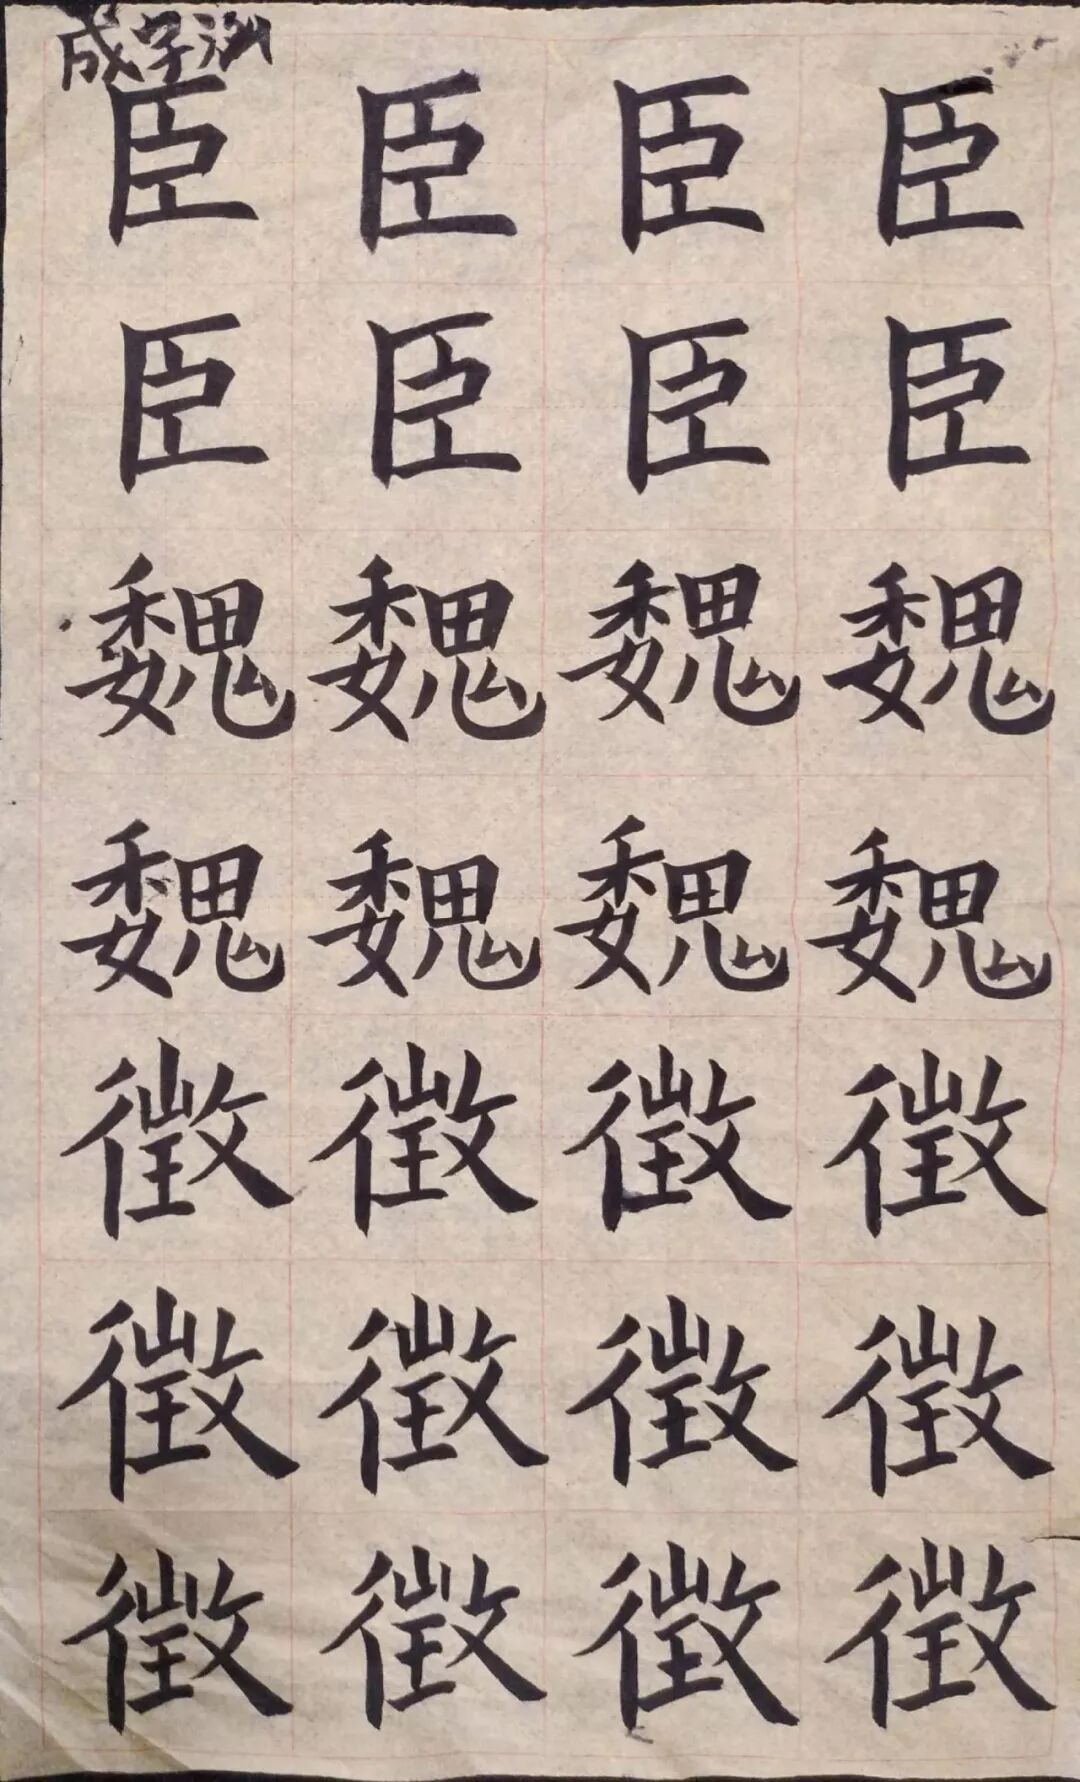 成字泓
臣臣臣臣
臣臣臣臣
魏魏魏魏
魏魏魏魏
徵徵徵徵
徵徵徵徵
徵徵徵徵